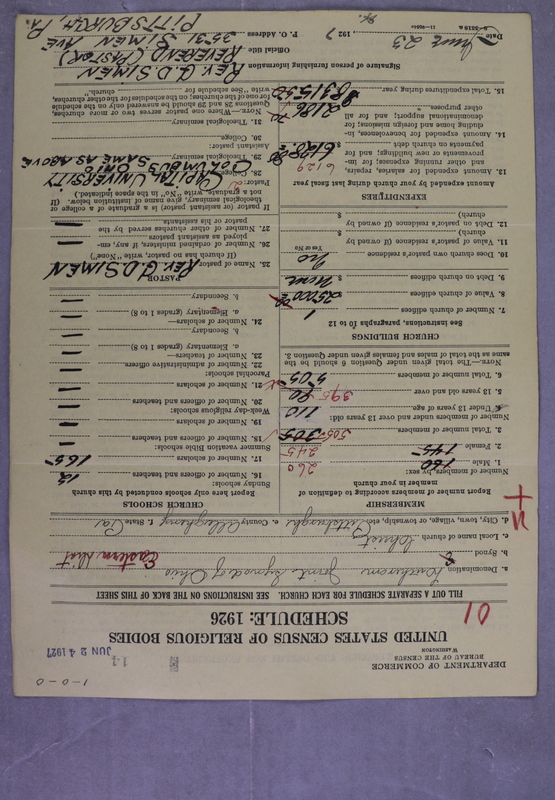 1-0-0
DEPARTMENT OF COMMERCE
BUREAU OF THE CENSUS
WASHINGTON
JUN 24 1927
UNITED STATES CENSUS OF RELIGIOUS BODIES
SCHEDULE: 1926
FILL OUT A SEPARATE SCHEDULE FOR EACH CHURCH. SEE INSTRUCTIONS ON THE BACK OF THIS SHEET
a. Denomination Lutheran Joint Synod of Ohio
b. Synod Eastern Dist
c. Local name of church Christ
d. City, town, village, or township, etc. Pittsburgh County Allegheny State Pa
MEMBERSHIP
Report number of members according to definition of member in your church
Number of members, by sex:
1. Male 160 260
2. Female 145 245
3. Total number of members 305 505
Number of members under and over 13 years old:
4. Under 13 years of age 110
5. 13 years old and over 395
6. Total number of members 505
NOTE.—The total given under Question 6 should be the same as the total of males and females given under Question 3.
CHURCH BUILDINGS
See instructions, paragraphs 10 to 12
7. Number of church edifices 1
8. Value of church edifices $ 25000
9. Debt on church edifices $ None
10. Does church own pastor's residence no
Yes or No
11. Value of pastor's residence (if owned by church) $
12. Debt on pastor's residence (if owned by church) $
EXPENDITURES
Amount expended by your church during last fiscal year
13. Amount expended for salaries, repairs, and other running expenses; for improvements or new buildings; and for payments on church debt $ 6128.80 6129
14. Amount expended for benevolences, including home and foreign missions; for denominational support; and for all other purposes $ 2186.70
15. Total expenditures during year $ 8315.50
CHURCH SCHOOLS
Report here only schools conducted by this church
Sunday schools:
16. Number of officers and teachers 12
17. Number of scholars 165
Summer vacation Bible schools:
18. Number of officers and teachers —
19. Number of scholars —
Week-day religious schools:
20. Number of officers and teachers —
21. Number of scholars —
Parochial schools:
22. Number of administrative officers —
23. Number of teachers—
a. Elementary (grades 1 to 8) —
b. Secondary —
24. Number of scholars—
a. Elementary (grades 1 to 8) —
b. Secondary —
PASTOR
25. Name of pastor REV. G. D. SIMEN
(If church has no pastor, write "None")
26. Number of ordained ministers, if any, employed as assistant pastors —
27. Number of other churches served by the pastor or his assistants —
If pastor or assistant pastor is a graduate of a college or theological seminary, give name of institution below. (If not a graduate, write "No" in the space indicated.)
Pastor:
28. College CAPITAL UNIVERSITY COLUMBUS OHIO
29. Theological seminary SAME AS ABOVE
Assistant pastor:
30. College
31. Theological seminary
NOTE.—Where one pastor serves two or more churches, Questions 28 and 29 should be answered only on the schedule for one of the churches; on the schedules for the other churches, write "See schedule for church."
Signature of person furnishing information REV. G. D. SIMEN
Official title REVEREND (PASTOR)
P. O. Address 3531 SIMEN AVE
PITTSBURGH, PA.
Date June 23, 1927